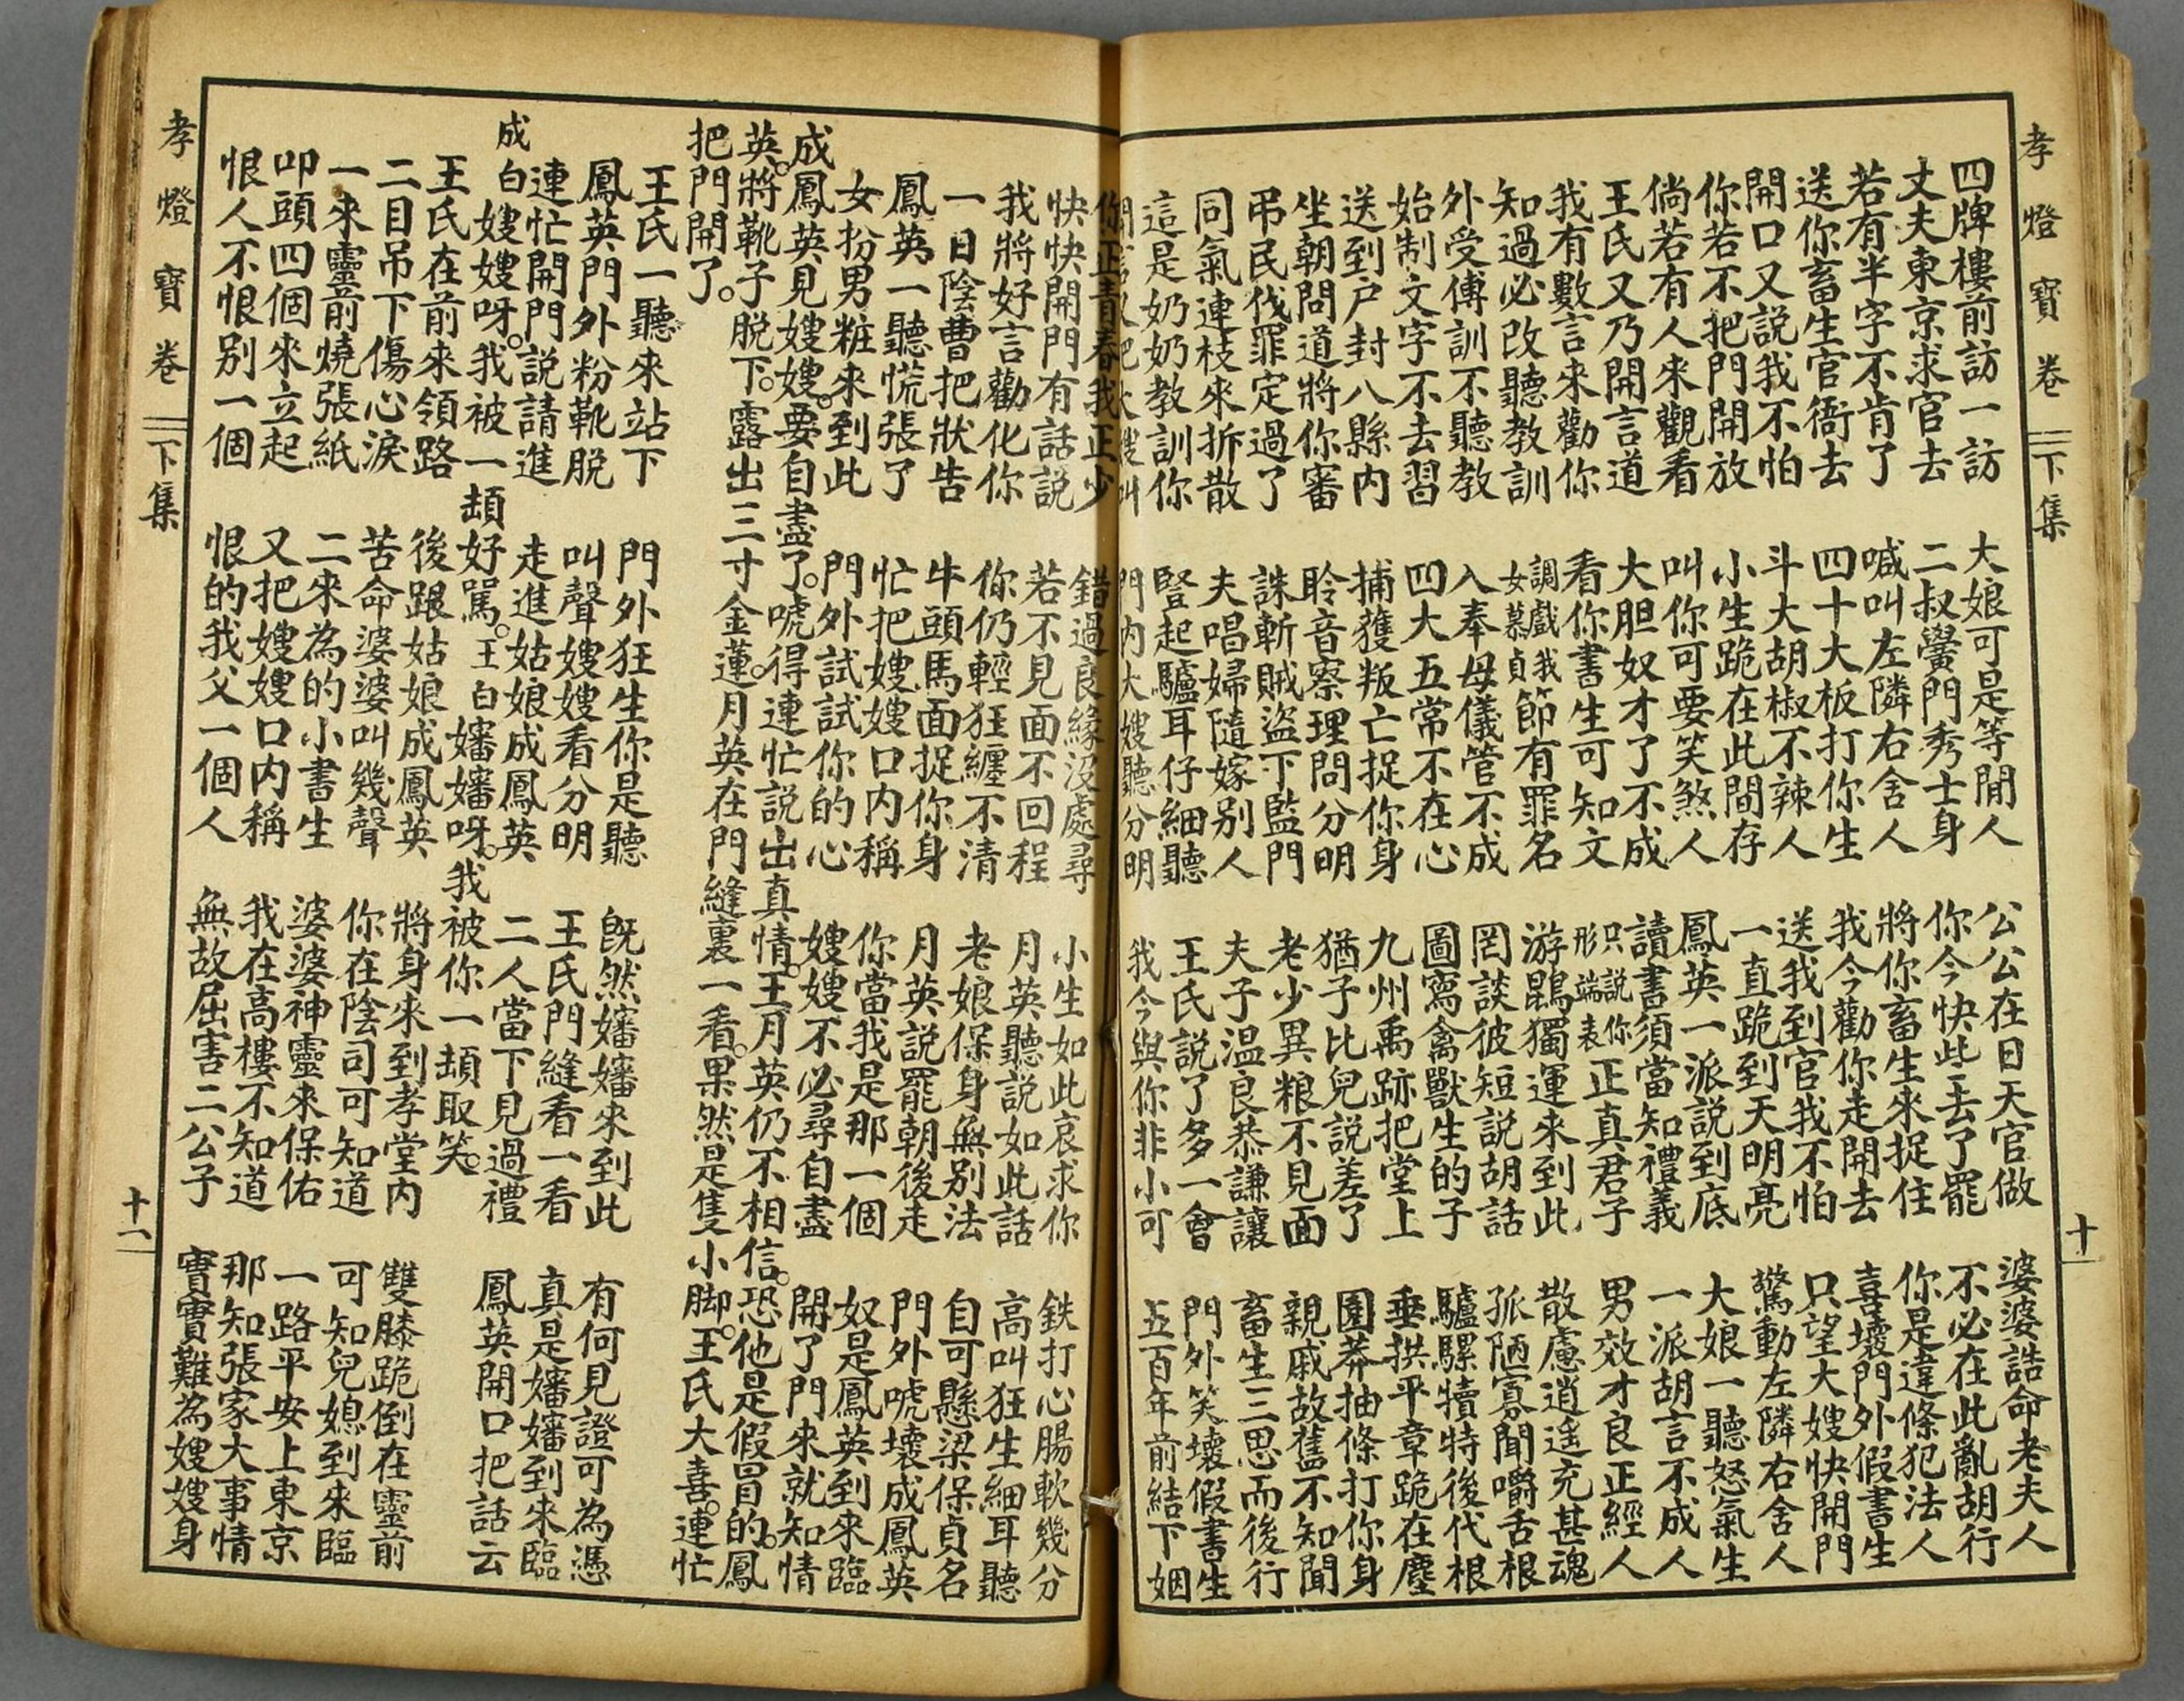 孝燈寶卷 下集 十
四牌樓前訪一訪 大娘可是等閒人 公公在日天官做 婆婆誥命老夫人
丈夫東京求官去 二叔黌門秀士身 你今快些去了罷 不必在此亂胡行
若有半字不肯了 喊叫左隣右舍人 將你畜生來捉住 你是違條犯法人
送你畜生官衙去 四十大板打你生 我今勸你走開去 喜壞門外假書生
開口又説我不怕 斗大胡椒不辣人 送我到官我不怕 只望大嫂快開門
你若不把門開放 小生跪在此間存 一直跪到天明亮 驚動左隣右舍人
倘若有人來觀看 叫你可要笑煞人 鳳英一派説到底 大娘一聽怒氣生
王氏又乃開言道 大胆奴才了不成 讀書須當知禮義 一派胡言不成人
我有數言來勸你 看你書生可知文 只説你形端表正真君子 男效才良正經人
知過必改聽教訓 調戲我女慕貞節有罪名 游鵾獨運來到此 散慮逍遥充甚魂
外受傅訓不聽教 入奉母儀管不成 罔談彼短説胡話 孤陋寡聞嚼舌根
始制文字不去習 四大五常不在心 圖寫禽獸生的子 驢騾犢特後代根
送到户封八縣内 捕獲叛亡捉你身 九州禹跡把堂上 垂拱平章跪在塵
坐朝問道將你審 聆音察理問分明 猶子比兒説差了 園莽抽條打你身
吊民伐罪定過了 誅斬賊盜下監門 老少異粮不見面 親戚故舊不知聞
同氣連枝來拆散 夫唱婦隨嫁别人 夫子温良恭謙讓 畜生三思而後行
這是奶奶教訓你 豎起驢耳仔細聽 王氏説了多一會 門外笑壞假書生
又把大嫂叫 門内大嫂聽分明 我今與你非小可 五百年前結下姻
你正青春我正少 錯過良緣没處尋 小生如此哀求你 鉄打心腸軟幾分
快快開門有話説 若不見面不回程 月英聽説如此話 高叫狂生細耳聽
我將好言勸化你 你仍輕狂纏不清 老娘保身無别法 自可懸梁保貞名
一日陰曹把狀告 牛頭馬面捉你身 月英説罷朝後走 門外唬壞成鳳英
鳳英一聽慌張了 忙把嫂嫂口内稱 你當我是那一個 奴是鳳英到來臨
女扮男粧來到此 門外試試你的心 嫂嫂不必尋自盡 開了門來就知情
成鳳英見嫂嫂。要自盡了。唬得連忙説出真情。王月英仍不相信。恐他是假冒的。鳳
英。將靴子脱下。露出三寸金蓮。月英在門縫裏一看。果然是隻小脚。王氏大喜。連忙
把門開了。
王氏一聽來站下 門外狂生你是聽 既然嬸嬸來到此 有何見證可為憑
鳳英門外粉靴脱 叫聲嫂嫂看分明 王氏門縫看一看 真是嬸嬸到來臨
連忙開門説請進 走進姑娘成鳳英 二人當下見過禮 鳳英開口把話云
成白嫂嫂呀。我被一頡好罵。王白嬸嬸呀。我被你一頡取笑。
王氏在前來領路 後跟姑娘成鳳英 將身來到孝堂内 雙膝跪倒在靈前
二目吊下傷心淚 苦命婆婆叫幾聲 你在陰司可知道 可知兒媳到來臨
一來靈前燒張紙 二來為的小書生 婆婆神靈來保佑 一路平安上東京
叩頭四個來立起 又把嫂嫂口内稱 我在高樓不知道 那知張家大事情
恨人不恨别一個 恨的我父一個人 無故屈害二公子 實實難為嫂嫂身
孝燈寶卷 下集 十一